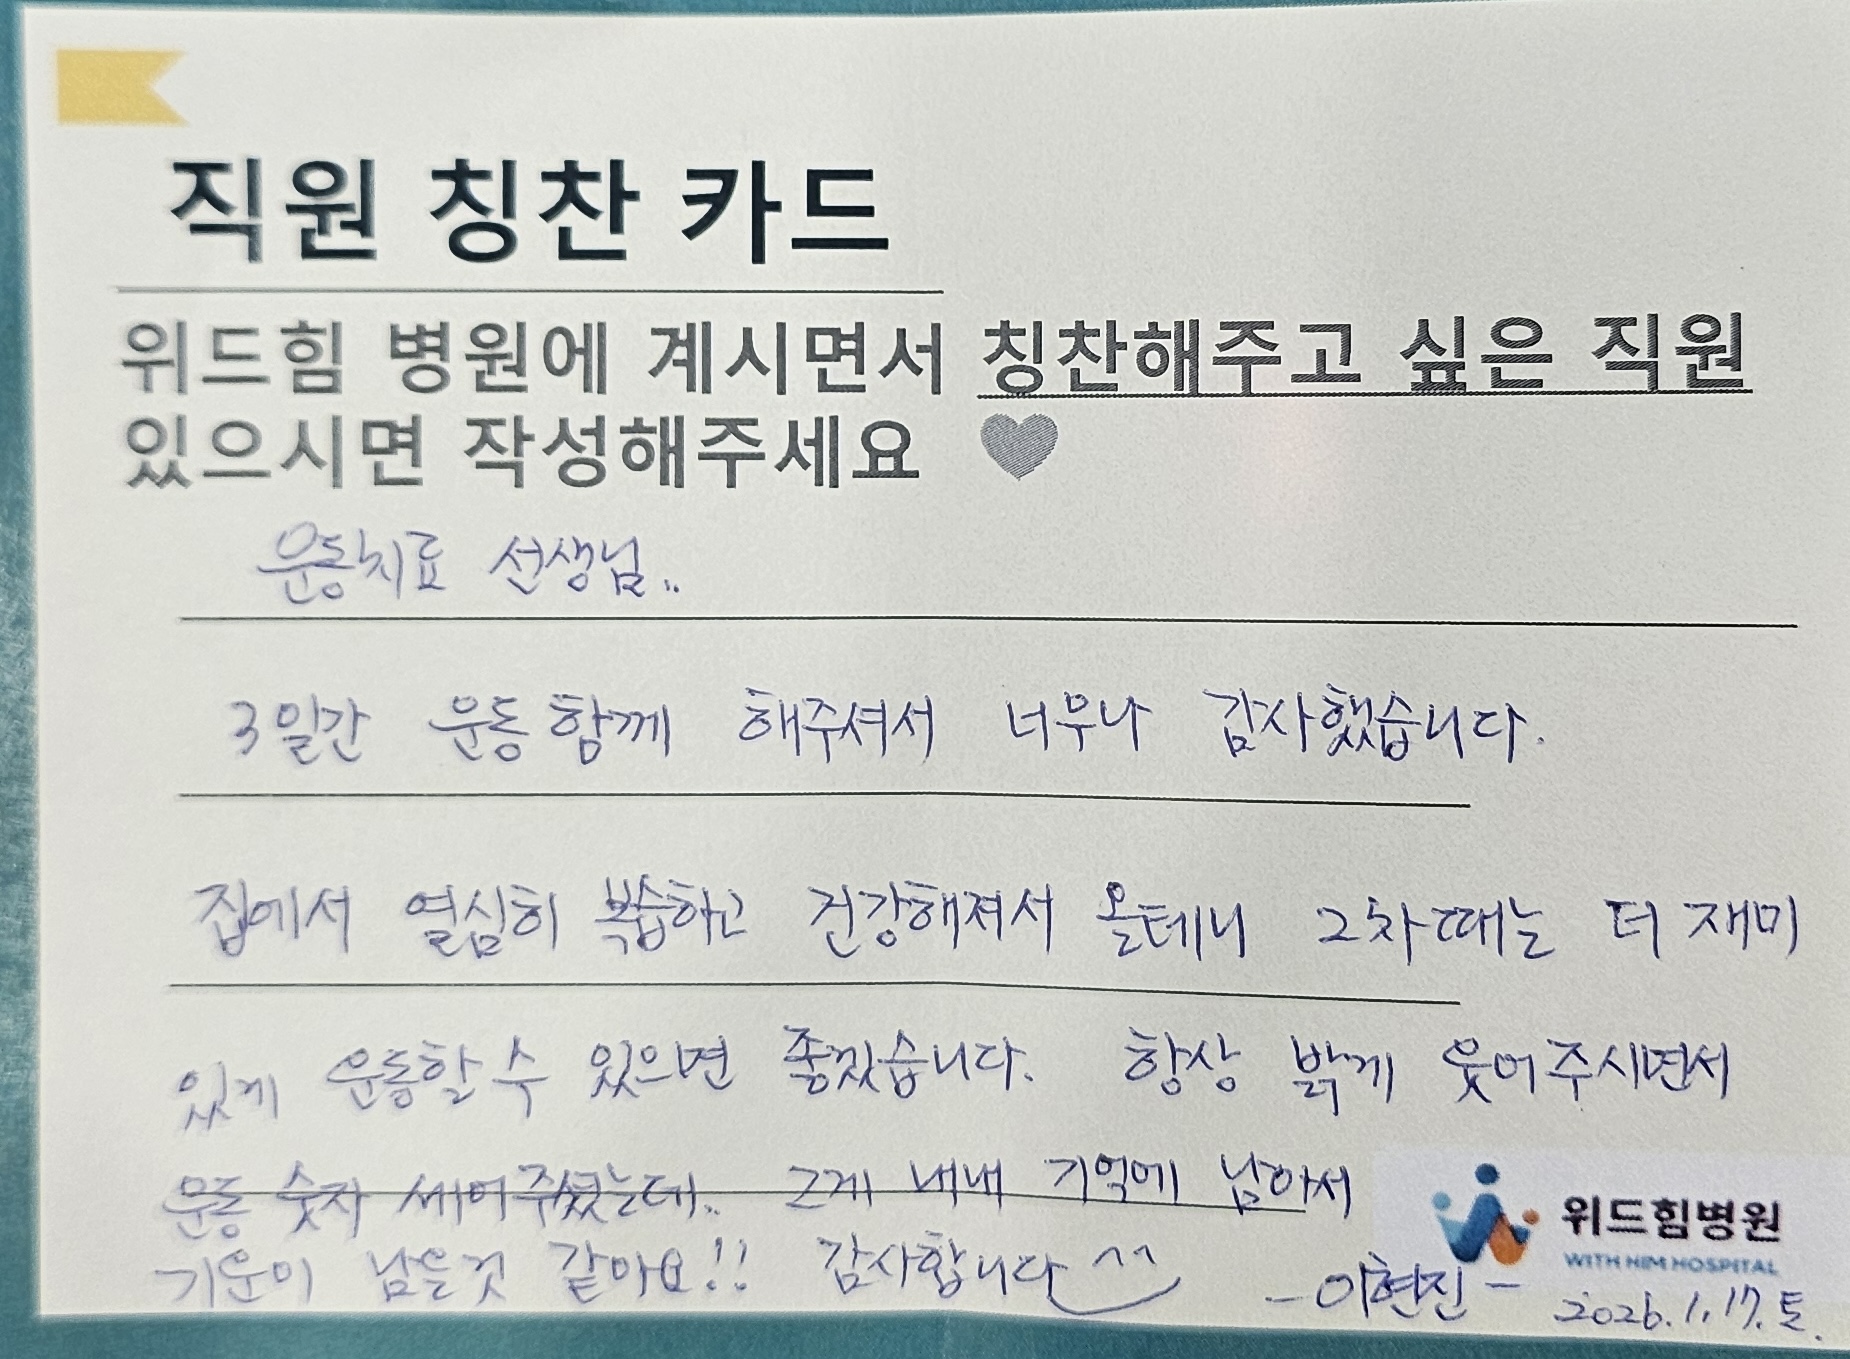 직원 칭찬 카드
위드힘 병원에 계시면서 칭찬해주고 싶은 직원
있으시면 작성해주세요
운동치료 선생님..
3일간 운동 함께 해주셔서 너무나 감사했습니다.
집에서 열심히 복습하고 건강해져서 올테니 2차때는 더 재미
있게 운동할 수 있으면 좋겠습니다. 항상 밝게 웃어주시면서
운동 숫자 세어주셨는데.. 그게 내내 기억에 남아서
기운이 남은것 같아요!! 감사합니다 ^^
위드힘병원
WITH HIM HOSPITAL
- 이현진 -
2026.1.17.토.